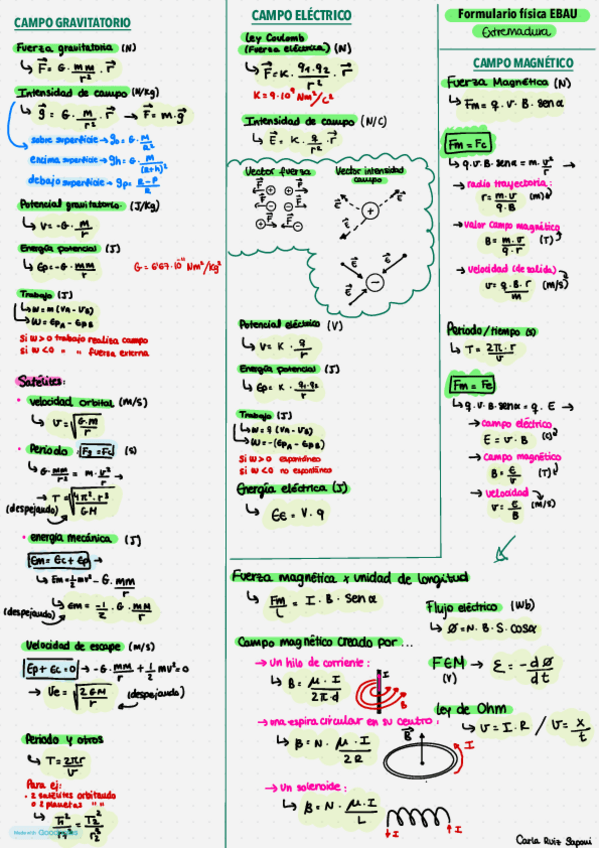 CAMPO GRAVITATORIO
Fuerza gravitatoria (N)
↳ F⃗ = G · mm/r² · r⃗
Intensidad de campo (N/Kg)
↳ g⃗ = G · m/r² · r⃗ → F⃗ = m·g⃗
sobre superficie → g₀ = G · M/R²
encima superficie → gh = G · M/(R+h)²
debajo superficie → gp =
Potencial gravitatorio (J/Kg)
↳ V = -G · M/r
Energía potencial (J)
↳ Ep = -G · mm/r
G = 6'67·10⁻¹¹ Nm²/Kg²
Trabajo (J)
↳ W = m (VA - VB)
↳ W = EpA - EpB
Si W > 0 trabajo realiza campo
Si W < 0 " " fuerza externa
Satélites:
• velocidad orbital (m/s)
↳ v = √(G·M/r)
• Periodo Fg = Fc (s)
↳ G · mm/r² = m · v²/r →
→ T = √(4π²·r³/GM)
(despejando)
• energía mecánica (J)
Em = Ec + Ep →
↳ Em = ½ mv² - G · mm/r
(despejando) → Em = -½ · G · mM/r
Velocidad de escape (m/s)
Ep + Ec = 0 → -G · mm/r + ½ mv² = 0
→ Ve = √(2GM/r) (despejando)
Periodo y otros
↳ T = 2πr/v
Para ej:
• 2 satélites orbitando
o 2 planetas " "
↳ T₁²/r₁³ = T₂²/r₂³
Made with Goodnotes
CAMPO ELÉCTRICO
Ley Coulomb
(Fuerza eléctrica) (N)
↳ F⃗ = K · q₁·q₂/r² · r⃗
K = 9·10⁹ Nm²/C²
Intensidad de campo (N/C)
↳ E⃗ = K · q/r² · r⃗
Vector fuerza
Vector intensidad
campo
F⃗ ⊕ ⊕ F⃗
F⃗ ⊖ ⊖ F⃗
⊕ F⃗ F⃗ ⊖
E⃗ E⃗ + E⃗
E⃗ E⃗ - E⃗
Potencial eléctrico (V)
↳ V = K · q/r
Energía potencial (J)
↳ Ep = K · q₁·q₂/r
Trabajo (J)
↳ W = q (VA - VB)
↳ W = -(EpA - EpB)
Si W > 0 espontáneo
Si W < 0 no espontáneo
Energía eléctrica (J)
↳ EE = V · q
Formulario física EBAU
Extremadura
CAMPO MAGNÉTICO
Fuerza Magnética (N)
↳ Fm = q · v · B · senα
Fm = Fc
↳ q · v · B · senα = m · v²/r →
→ radio trayectoria:
r = m·v/q·B (m)
→ valor campo magnético
B = m·v/q·r (T)
→ velocidad (de salida)
v = q·B·r/m (m/s)
Periodo/tiempo (s)
↳ T = 2π·r/v
Fm = Fe
↳ q · v · B · senα = q · E →
→ campo eléctrico
E = v · B
→ campo magnético
B = E/v (T)
→ velocidad
v = E/B (m/s)
Fuerza magnética x unidad de longitud
↳ Fm/L = I · B · senα
Campo magnético creado por ...
→ Un hilo de corriente:
↳ B = μ·I/2πd
I
B
→ una espira circular en su centro:
↳ B = N · μ·I/2R
B⃗ I
→ Un solenoide:
↳ B = N · μ·I/L
↓I ↑I
Flujo eléctrico (Wb)
↳ Ø = N·B·S·cosα
FEM → ε = -dØ/dt
(V)
ley de Ohm
↳ V = I·R / v = x/t
Carla Ruiz Saponi